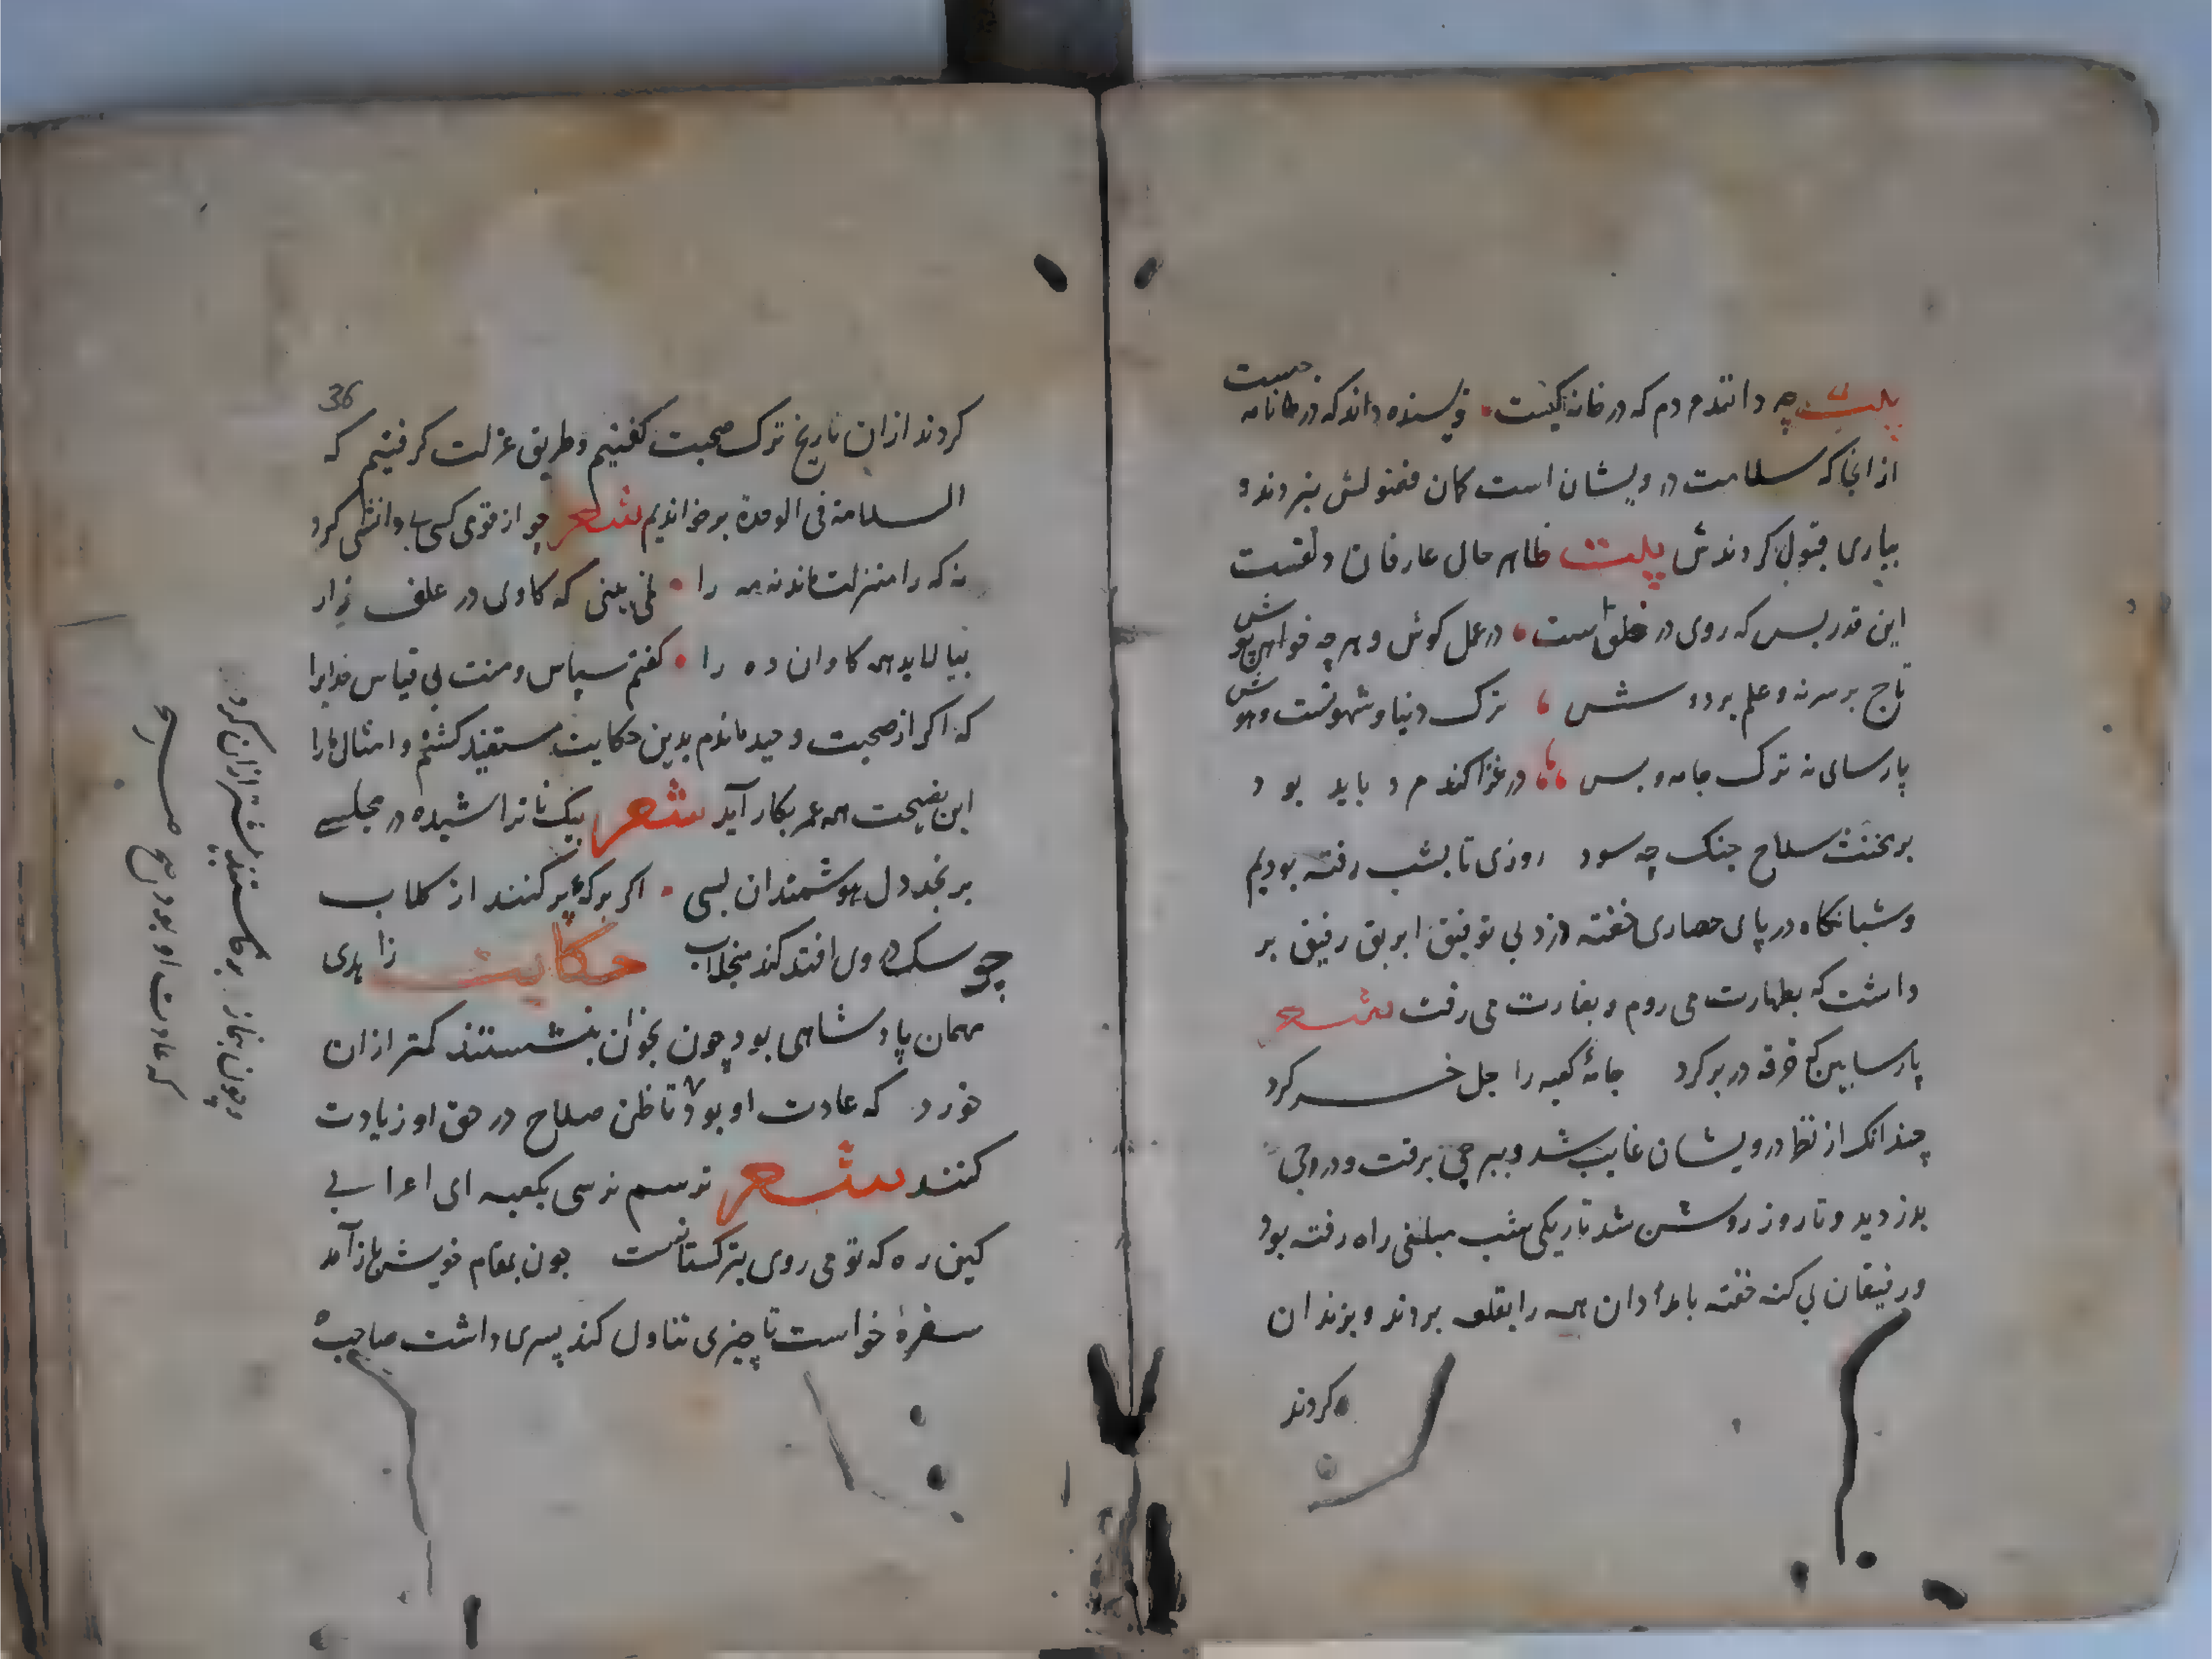 بیت چه دانند مردم که در خانه کیست نویسنده داند که در نامه چیست
از انجا که سلامت درویشان است کمان فضولش نبردند و
بیاری قبول کردندش بیت ظاهر حال عارفان دلقست
این قدر بس که روی در خلق است در عمل کوش و هر چه خواهی پوش
تاج بر سر نه و علم بر دوش ترک دنیا و شهوتست و هوس
پارسای نه ترک جامه و بس در غزاکند مرد باید بود
بر مخنث سلاح جنک چه سود روزی تا بشب رفته بودیم
و شبانکاه در پای حصاری خفته دزد بی توفیق ابریق رفیق بر
داشت که بطهارت می روم و بغارت می رفت شعر
پارسا بین که خرقه در بر کرد جامۀ کعبه را جل خر کرد
چندانک از نظر درویشان غایب شد و ببرجی برفت و درجی
بدزدید و تا روز روشن شد تاریکی شب مبلغی راه رفته بود
و رفیقان بی کنه خفته بامدادان همه را بقلعه بردند و بزندان
کردند
36
کردند از ان تاریخ ترک صحبت کفتیم و طریق عزلت کرفتیم که
السلامة فی الوحدة بر خواندیم شعر چو از قومی یکی بی دانشی کرد
نه که را منزلت ماند نه مه را نمی بینی که کاوی در علف زار
بیالاید همه کاوان ده را کفتم سپاس و منت بی قیاس خدایرا
که اکر از صحبت وحید ماندم بدین حکایت مستفید کشتم و امثال مارا
این نصیحت همه عمر بکار آید شعر بیک ناتراشیده در مجلسے
برنجد دل هوشمندان بسی اکر برکۀ پر کنند از کلاب
چو سک در وی افتد کند منجلاب حکایت زاهدی
مهمان پادشاهی بود چون بخوان بنشستند کمتر از ان
خورد که عادت او بود تا ظن صلاح در حق او زیادت
کنند شعر ترسم نرسی بکعبه ای اعرابی
کین ره که تو می روی بترکستانست چون بمقام خویش باز آمد
سفرۀ خواست تا چیزی تناول کند پسری داشت صاحب
و چون بنماز برخاستند بیشتر از ان کرد
که عادت او بود صح